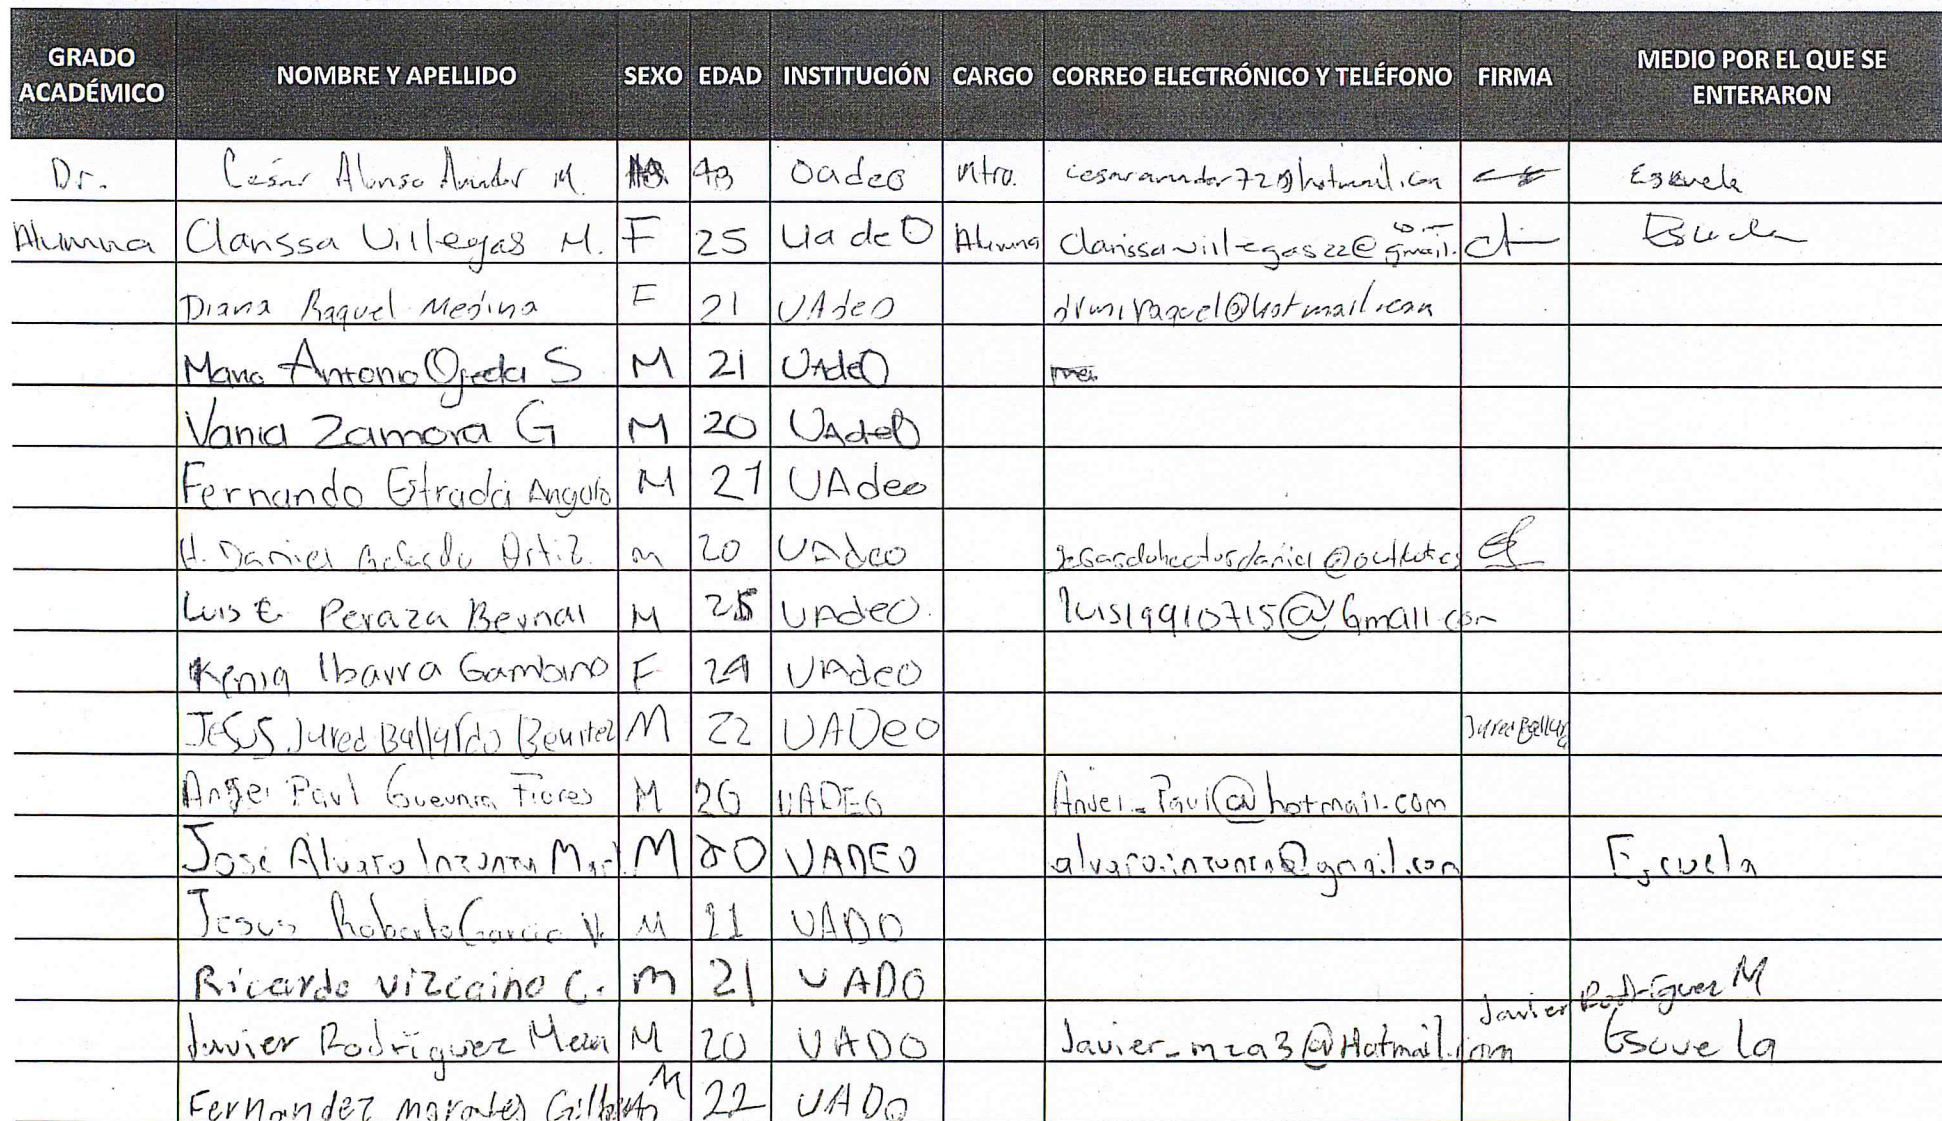 GRADO ACADÉMICO NOMBRE Y APELLIDO SEXO EDAD INSTITUCIÓN CARGO CORREO ELECTRÓNICO Y TELÉFONO FIRMA MEDIO POR EL QUE SE ENTERARON
Dr. César Alonso M. Oadeo Mtro. Escuela
Alumna Clarissa Villegas M. F 25 UadeO Alumna Clarissavillegas22@gmail.com Escuela
Diana Raquel Medina F 21 UAdeO
Mario Antonio Ojeda S M 21 UAdeO
Vania Zamora G M 20 UAdeO
Fernando Estrada Angulo M 21 UAdeo
H. Daniel Ortiz. m 20 UAdeo
Luis E. Peraza Bernal M UAdeO. luis19910715@Gmail.com
Kenia Ibarra Gambino F UAdeO
JESUS Jared Ballardo Benitez M 22 UADeO
Angel Paul Flores M 20 UADEO Angel_Paul@hotmail.com
José Alvaro Inzunza M 20 UADEO alvaro.inzunza@gmail.com Escuela
Jesus Roberto Garcia M 21 UADO
Ricardo Vizcaino C. m 21 UADO
Javier Rodríguez M
Javier Rodríguez Meza M 20 UADO Javier_mza3@Hotmail.com Escuela
Fernandez morales Gilberto M 22 UADO